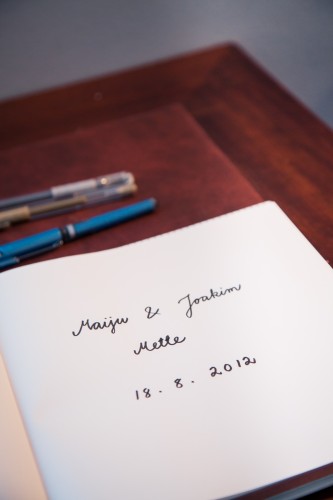 Maiju & Joakim
Mette
18. 8. 2012